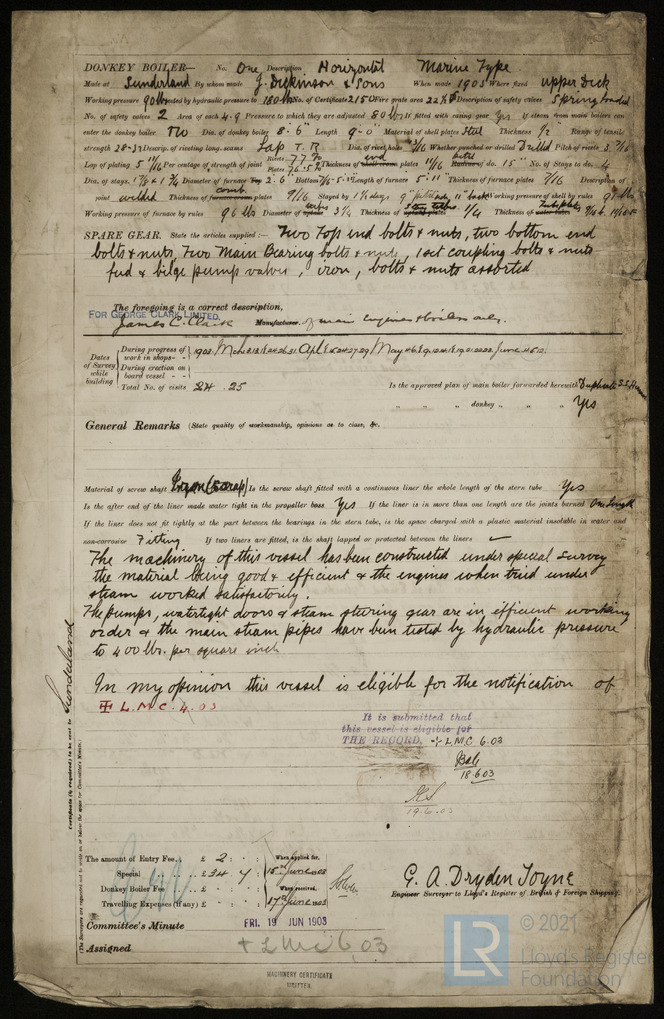 DONKEY BOILER— No. One Description Horizontal Marine Type
Made at Sunderland By whom made J. Dickinson & Sons When made 1903 Where fixed upper Deck
Working pressure 90 lbs tested by hydraulic pressure to 180 lbs No. of Certificate 2150 Fire grate area 22½ Description of safety valves Spring loaded
No. of safety valves 2 Area of each 4.9 Pressure to which they are adjusted 80 lbs If fitted with easing gear Yes If steam from main boilers can
enter the donkey boiler no Dia. of donkey boiler 8'-6" Length 9'-0" Material of shell plates Steel Thickness ½ Range of tensile
strength 28-32 Descrip. of riveting long. seams Lap T.R Dia. of rivet holes Whether punched or drilled Drilled Pitch of rivets
Lap of plating Per centage of strength of joint Rivets 77% Plates 76.5% Thickness of end plates 11/16 No. of Stays to do. 4
Dia. of stays. Diameter of furnace Top 2'.6" Bottom Length of furnace 5'.11" Thickness of furnace plates 7/16 Description of
joint welded Thickness of comb. plates 9/16 Stayed by Working pressure of shell by rules
Working pressure of furnace by rules 96 lbs Diameter of uptake 3¼ Thickness of Thickness of
SPARE GEAR. State the articles supplied:— Two Top end bolts & nuts, two bottom end
bolts & nuts, Two Main Bearing bolts & nuts, 1 set coupling bolts & nuts
fud & bilge pump valves, iron, bolts & nuts assorted
The foregoing is a correct description,
FOR GEORGE CLARK LIMITED.
James C. Clark Manufacturer. of main engines & boilers only.
Dates of Survey while building
During progress of work in shops--
During erection on board vessel---
Total No. of visits 24 25
Is the approved plan of main boiler forwarded herewith Duplicate
" " " donkey " " Yes
General Remarks (State quality of workmanship, opinions as to class, &c.
Material of screw shaft Iron (Scrap) Is the screw shaft fitted with a continuous liner the whole length of the stern tube Yes
Is the after end of the liner made water tight in the propeller boss Yes If the liner is in more than one length are the joints burned One length
If the liner does not fit tightly at the part between the bearings in the stern tube, is the space charged with a plastic material insoluble in water and
non-corrosive Fitting If two liners are fitted, is the shaft lapped or protected between the liners ✓
The machinery of this vessel has been constructed under special survey
the material being good & efficient & the engines when tried under
steam worked satisfactorily.
The pumps, watertight doors & steam steering gear are in efficient working
order & the main steam pipes have been tested by hydraulic pressure
to 400 lbs. per square inch
In my opinion this vessel is eligible for the notification of
✠ L.M.C. 4.03
It is submitted that
this vessel is eligible for
THE RECORD. + L.M.C 6.03
18.6.03
19.6.03
Certificate (if required) to be sent to Sunderland
(The Surveyors are requested not to write on or below the space for Committee's Minute.)
The amount of Entry Fee.. £ 2 : : When applied for,
Special .. .. £ 34 : 4 : 15th June 1903
Donkey Boiler Fee .. .. £ : : When received,
Travelling Expenses (if any) £ : : 17th June 1903
G. A. Dryden Toyne
Engineer Surveyor to Lloyd's Register of British & Foreign Shipping.
Committee's Minute FRI. 19 JUN 1903
Assigned + L.M.C 6.03
MACHINERY CERTIFICATE
WRITTEN.
LR
© 2021
Lloyd's Register
Foundation